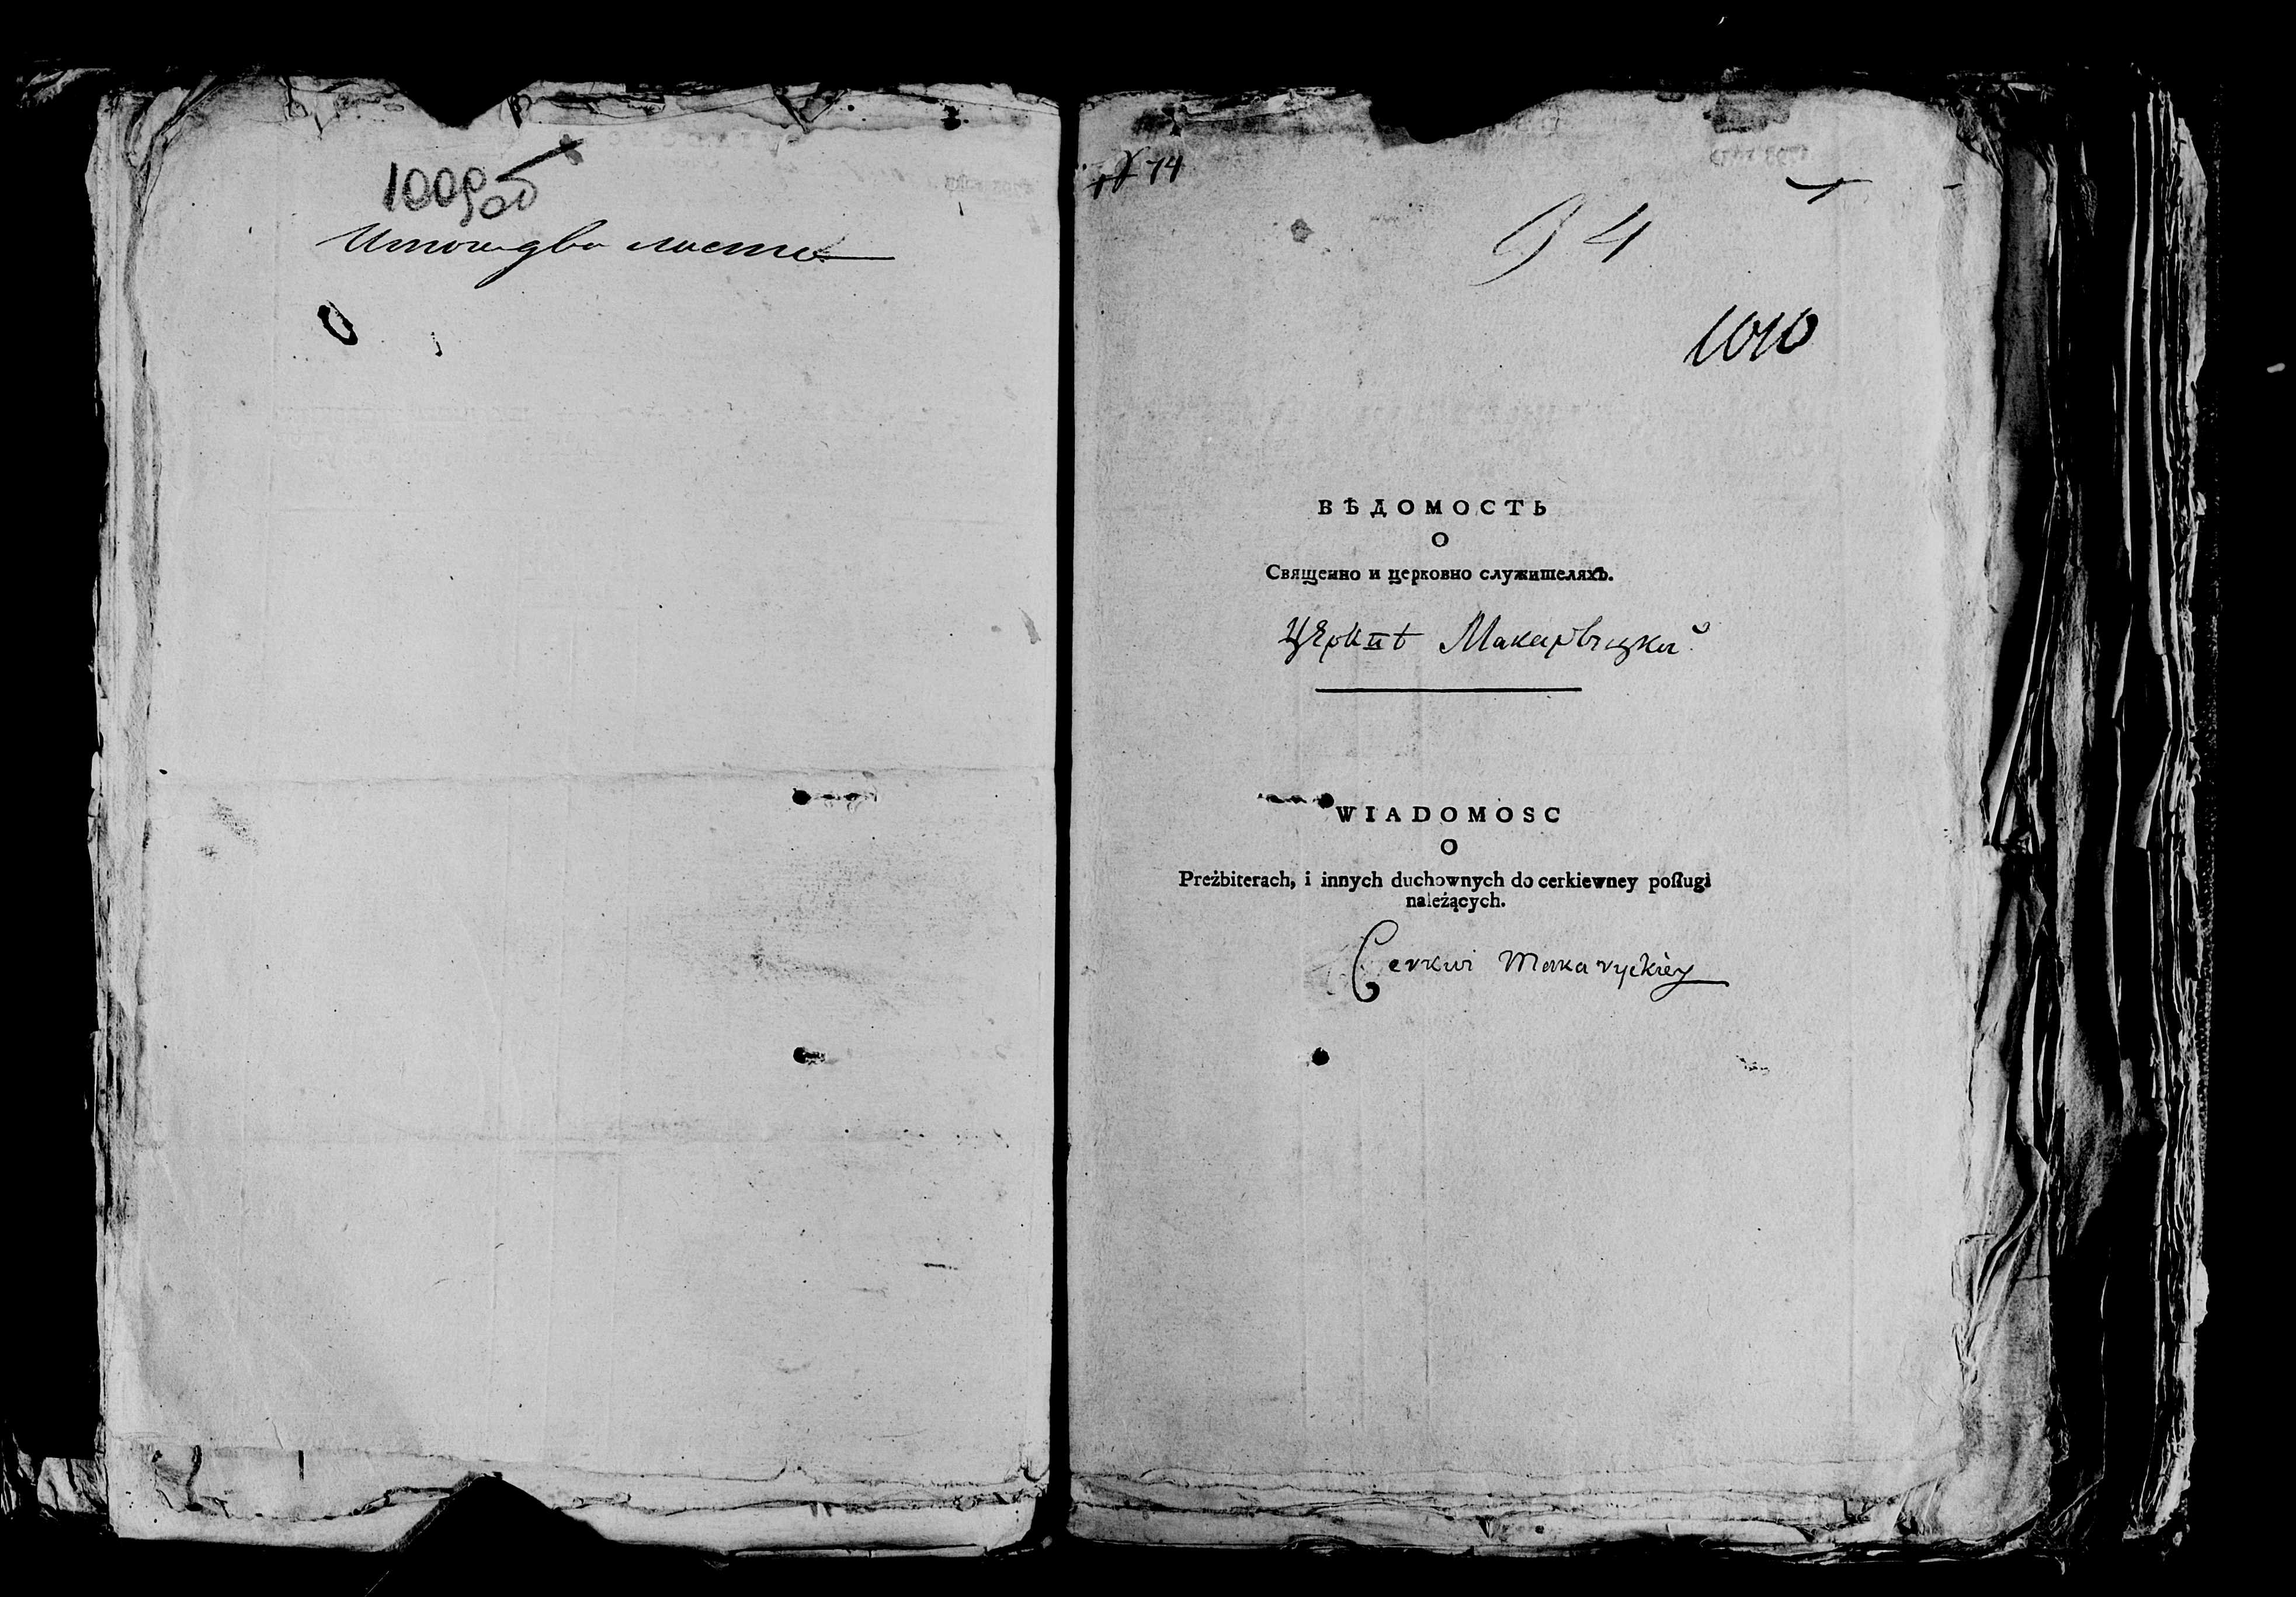 1009об
Итого два листа
№ 74
94
1010
ВѢДОМОСТЬ
О
Священно и церковно служителяхъ.
Церкви
WIADOMOSC
O
Preżbiterach, i innych duchownych do cerkiewney posługi
należących.
Cerkwi Makaryckiey